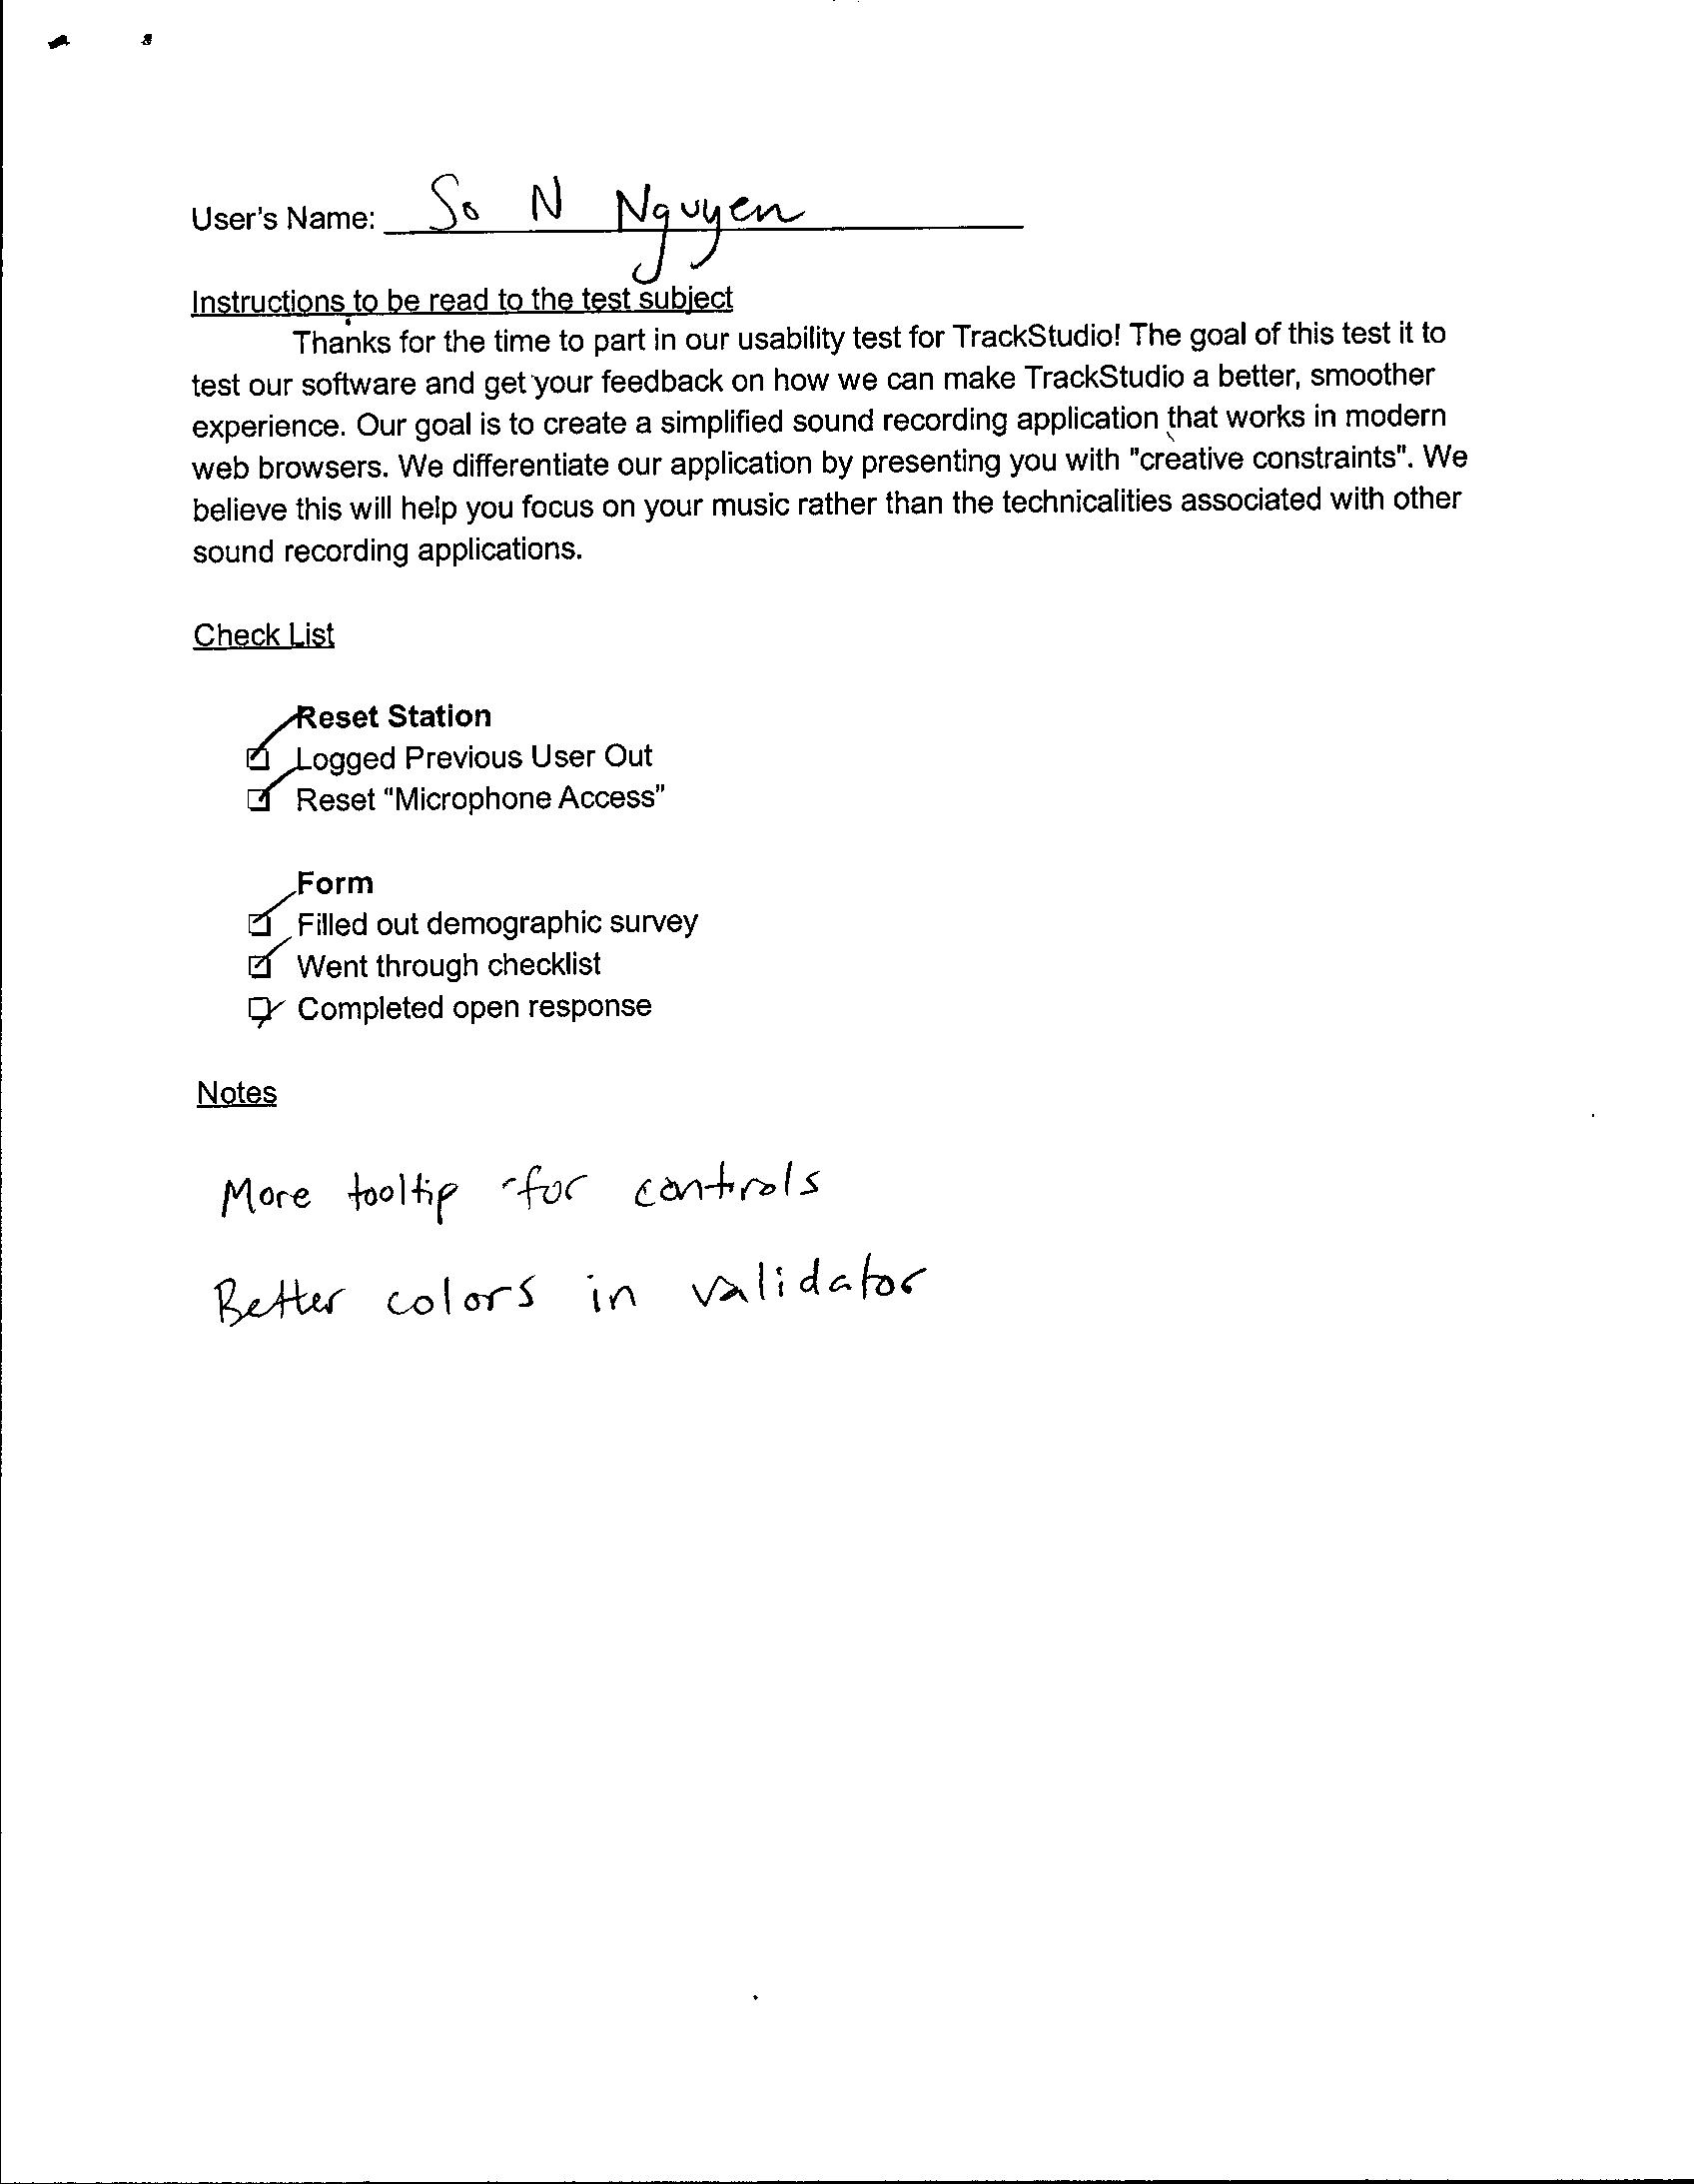 User's Name: So N Nguyen
Instructions to be read to the test subject
Thanks for the time to part in our usability test for TrackStudio! The goal of this test it to
test our software and get your feedback on how we can make TrackStudio a better, smoother
experience. Our goal is to create a simplified sound recording application that works in modern
web browsers. We differentiate our application by presenting you with "creative constraints". We
believe this will help you focus on your music rather than the technicalities associated with other
sound recording applications.
Check List
Reset Station
Logged Previous User Out
Reset "Microphone Access"
Form
Filled out demographic survey
Went through checklist
Completed open response
Notes
More tooltip for controls
Better colors in validator